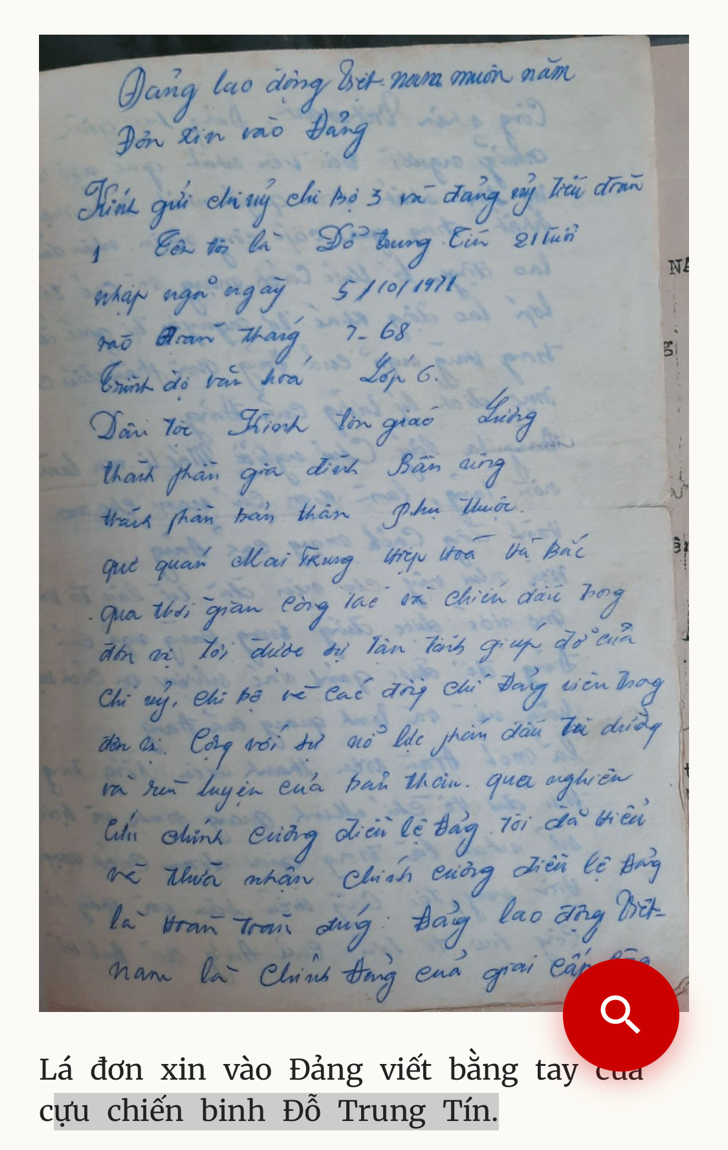 Đảng lao động Việt-nam muôn năm
Đơn xin vào Đảng
Kính gửi chi uỷ chi bộ 3 và đảng uỷ tiểu đoàn
1 Tên tôi là Đỗ Trung Tín 21 tuổi
nhập ngũ ngày 5/10/1971
vào Đoàn tháng 7-68
Trình độ văn hoá Lớp 6.
Dân tộc Kinh tôn giáo Lương
thành phần gia đình Bần nông
thành phần bản thân phụ thuộc.
quê quán Mai Trung Hiệp Hoà Hà Bắc
qua thời gian công tác và chiến đấu trong
đơn vị tôi được sự tận tình giúp đỡ của
chi uỷ, chi bộ và các đồng chí Đảng viên trong
đơn vị. Cộng với sự nỗ lực phấn đấu tu dưỡng
và rèn luyện của bản thân. qua nghiên
cứu chính cương điều lệ Đảng. Tôi đã hiểu
và thừa nhận chính cương điều lệ Đảng
là hoàn toàn đúng: Đảng lao động Việt-
nam là chính Đảng của giai cấp
Lá đơn xin vào Đảng viết bằng tay của
cựu chiến binh Đỗ Trung Tín.